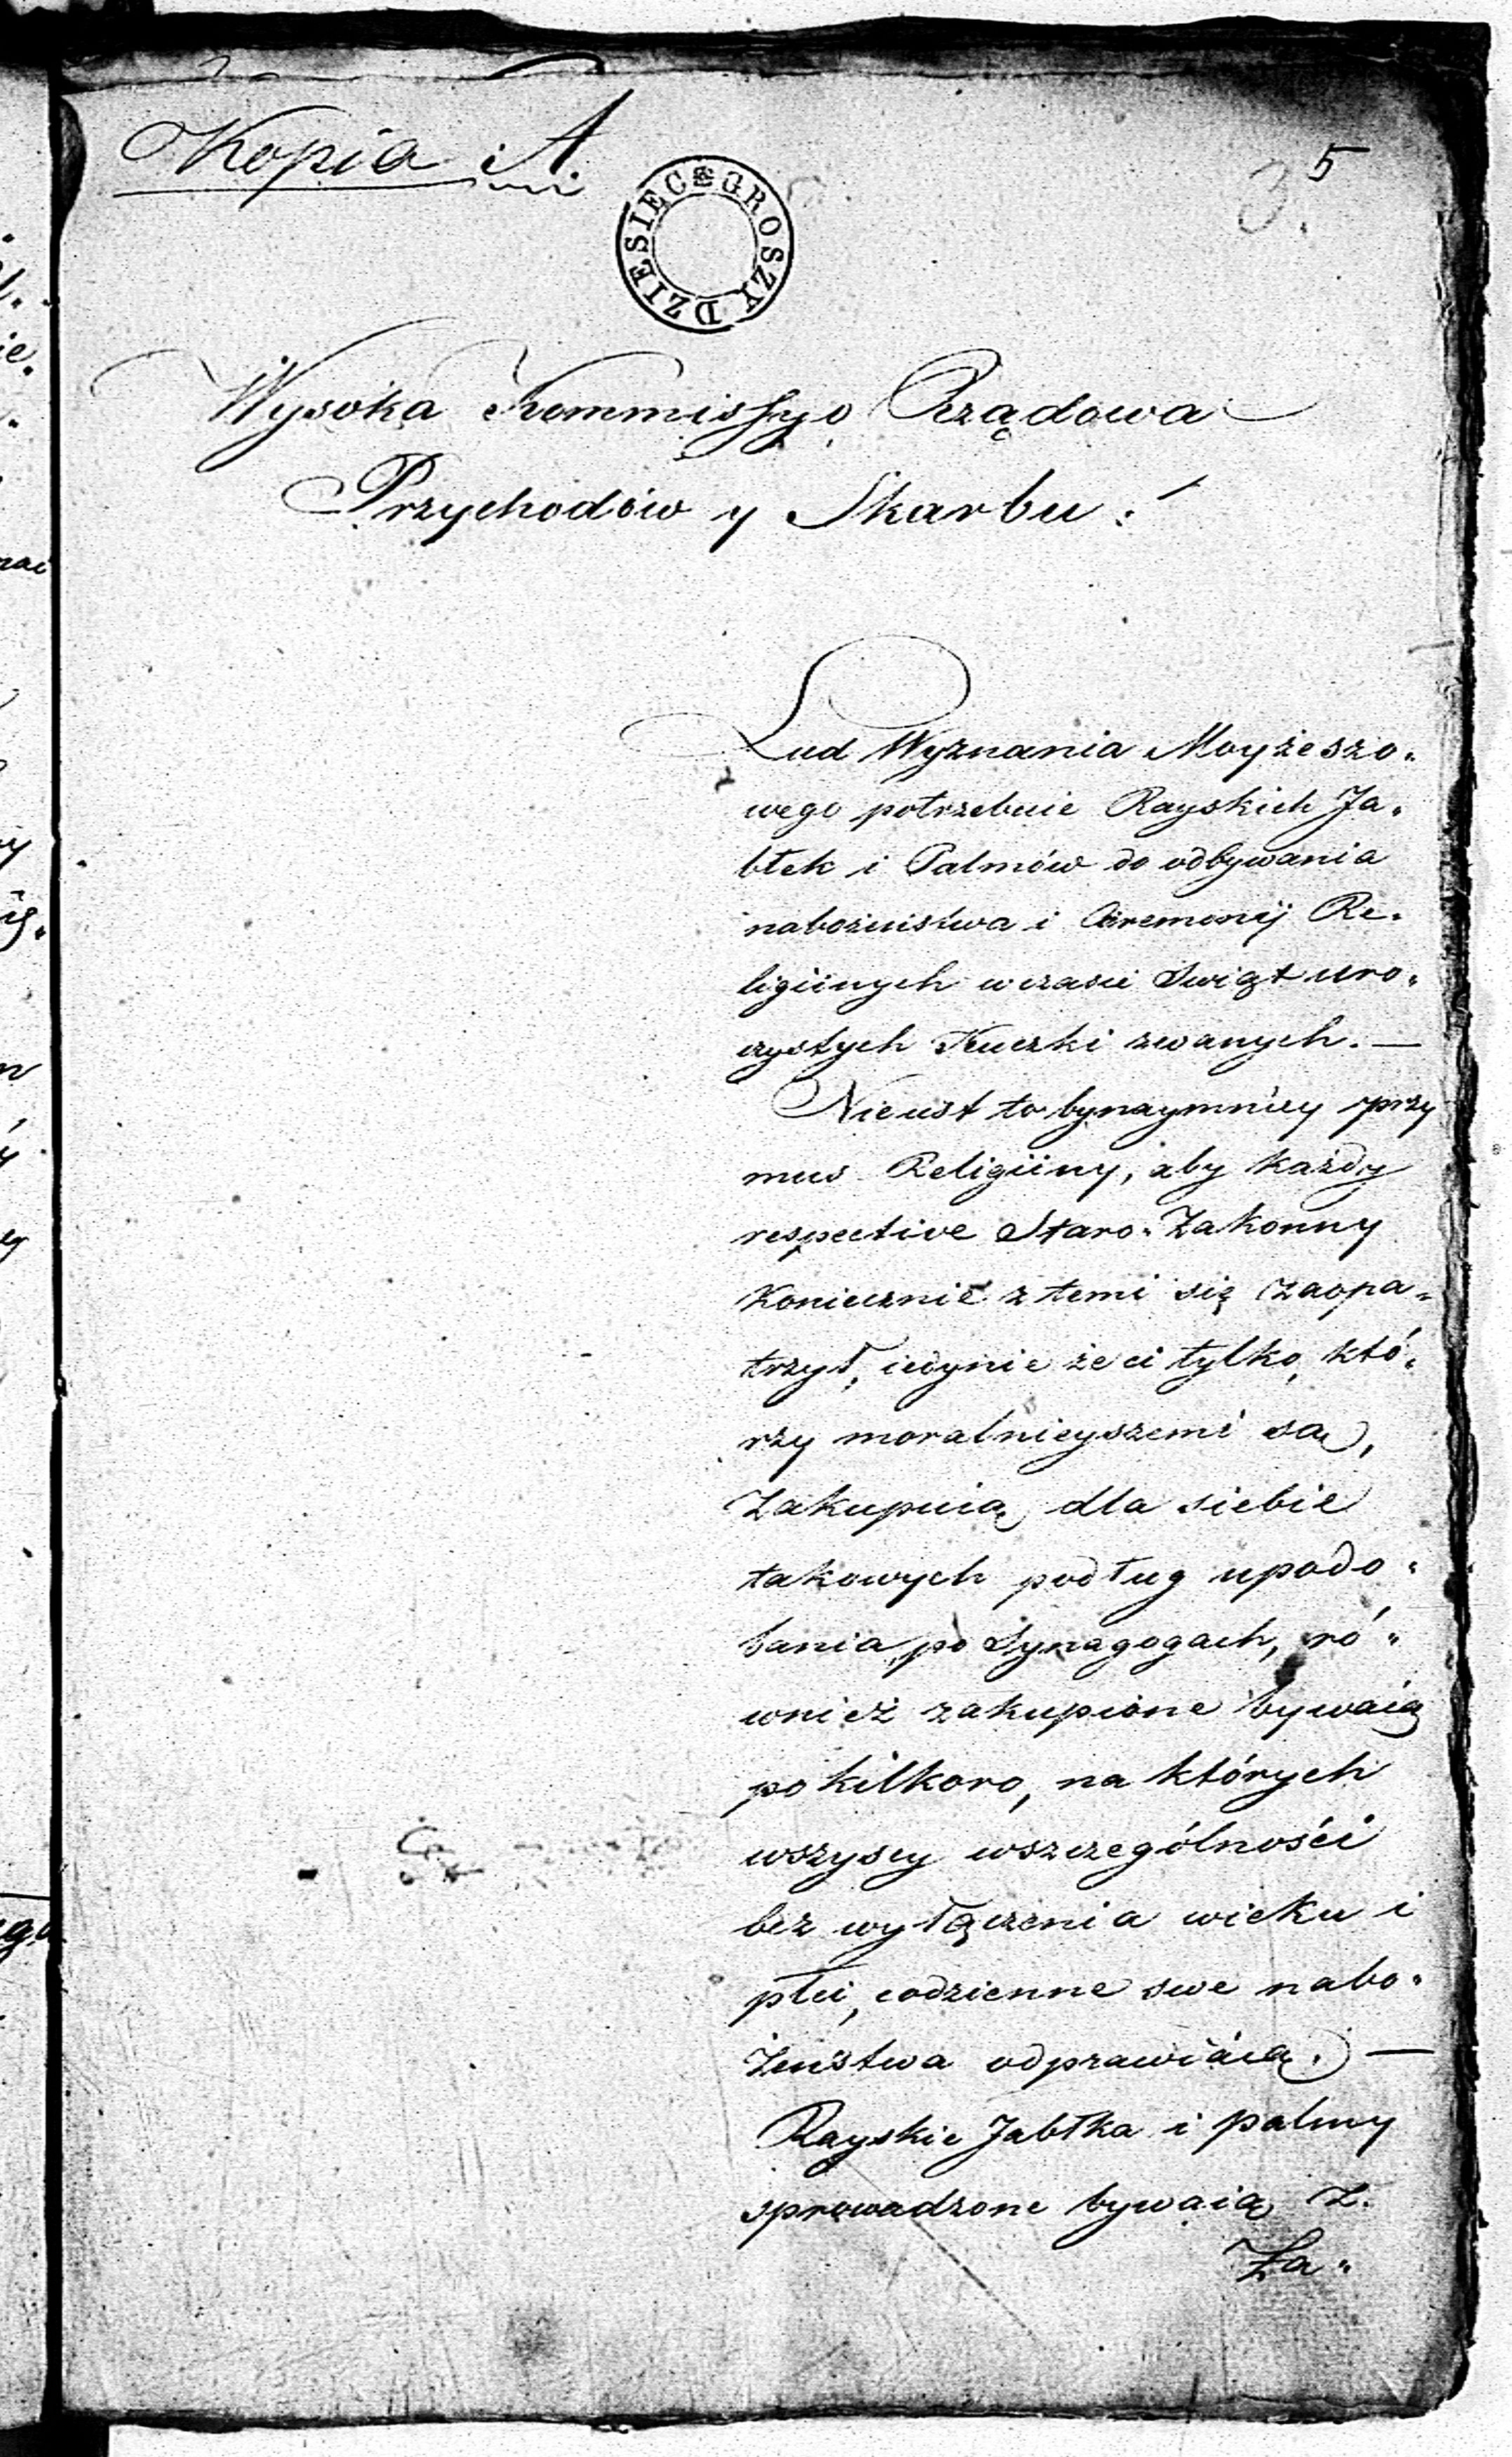 Kopia A.
5
3.
DZIESIĘC GROSZY
Wysoka Kommissyo Rządowa
Przychodów y Skarbu!
Lud Wyznania Moyżeszo-
wego potrzebuie Rayskich Ja-
błek i Palmów do odbywania
nabożeństwa i Ceremonij Re-
ligiinych w czasie Swiąt uro-
czystych Kuczki zwanych. —
Nieiest to bynaymniey przy
mus Religiiny, aby każdy
respective Staro-Zakonny
Koniecznie z temi się zaopa-
trzył, iedynie że ci tylko, któ-
rzy moralnieyszemi są,
Zakupuią dla siebie
takowych podług upodo-
bania, po Synagogach, ró-
wnież zakupione bywaią
po kilkoro, na których
wszyscy wszczególności
bez wyłączenia wieku i
płci, codzienne swe nabo-
żeństwa odprawiaią. —
Rayskie Jabłka i palmy
sprowadzone bywaią z.
Za-